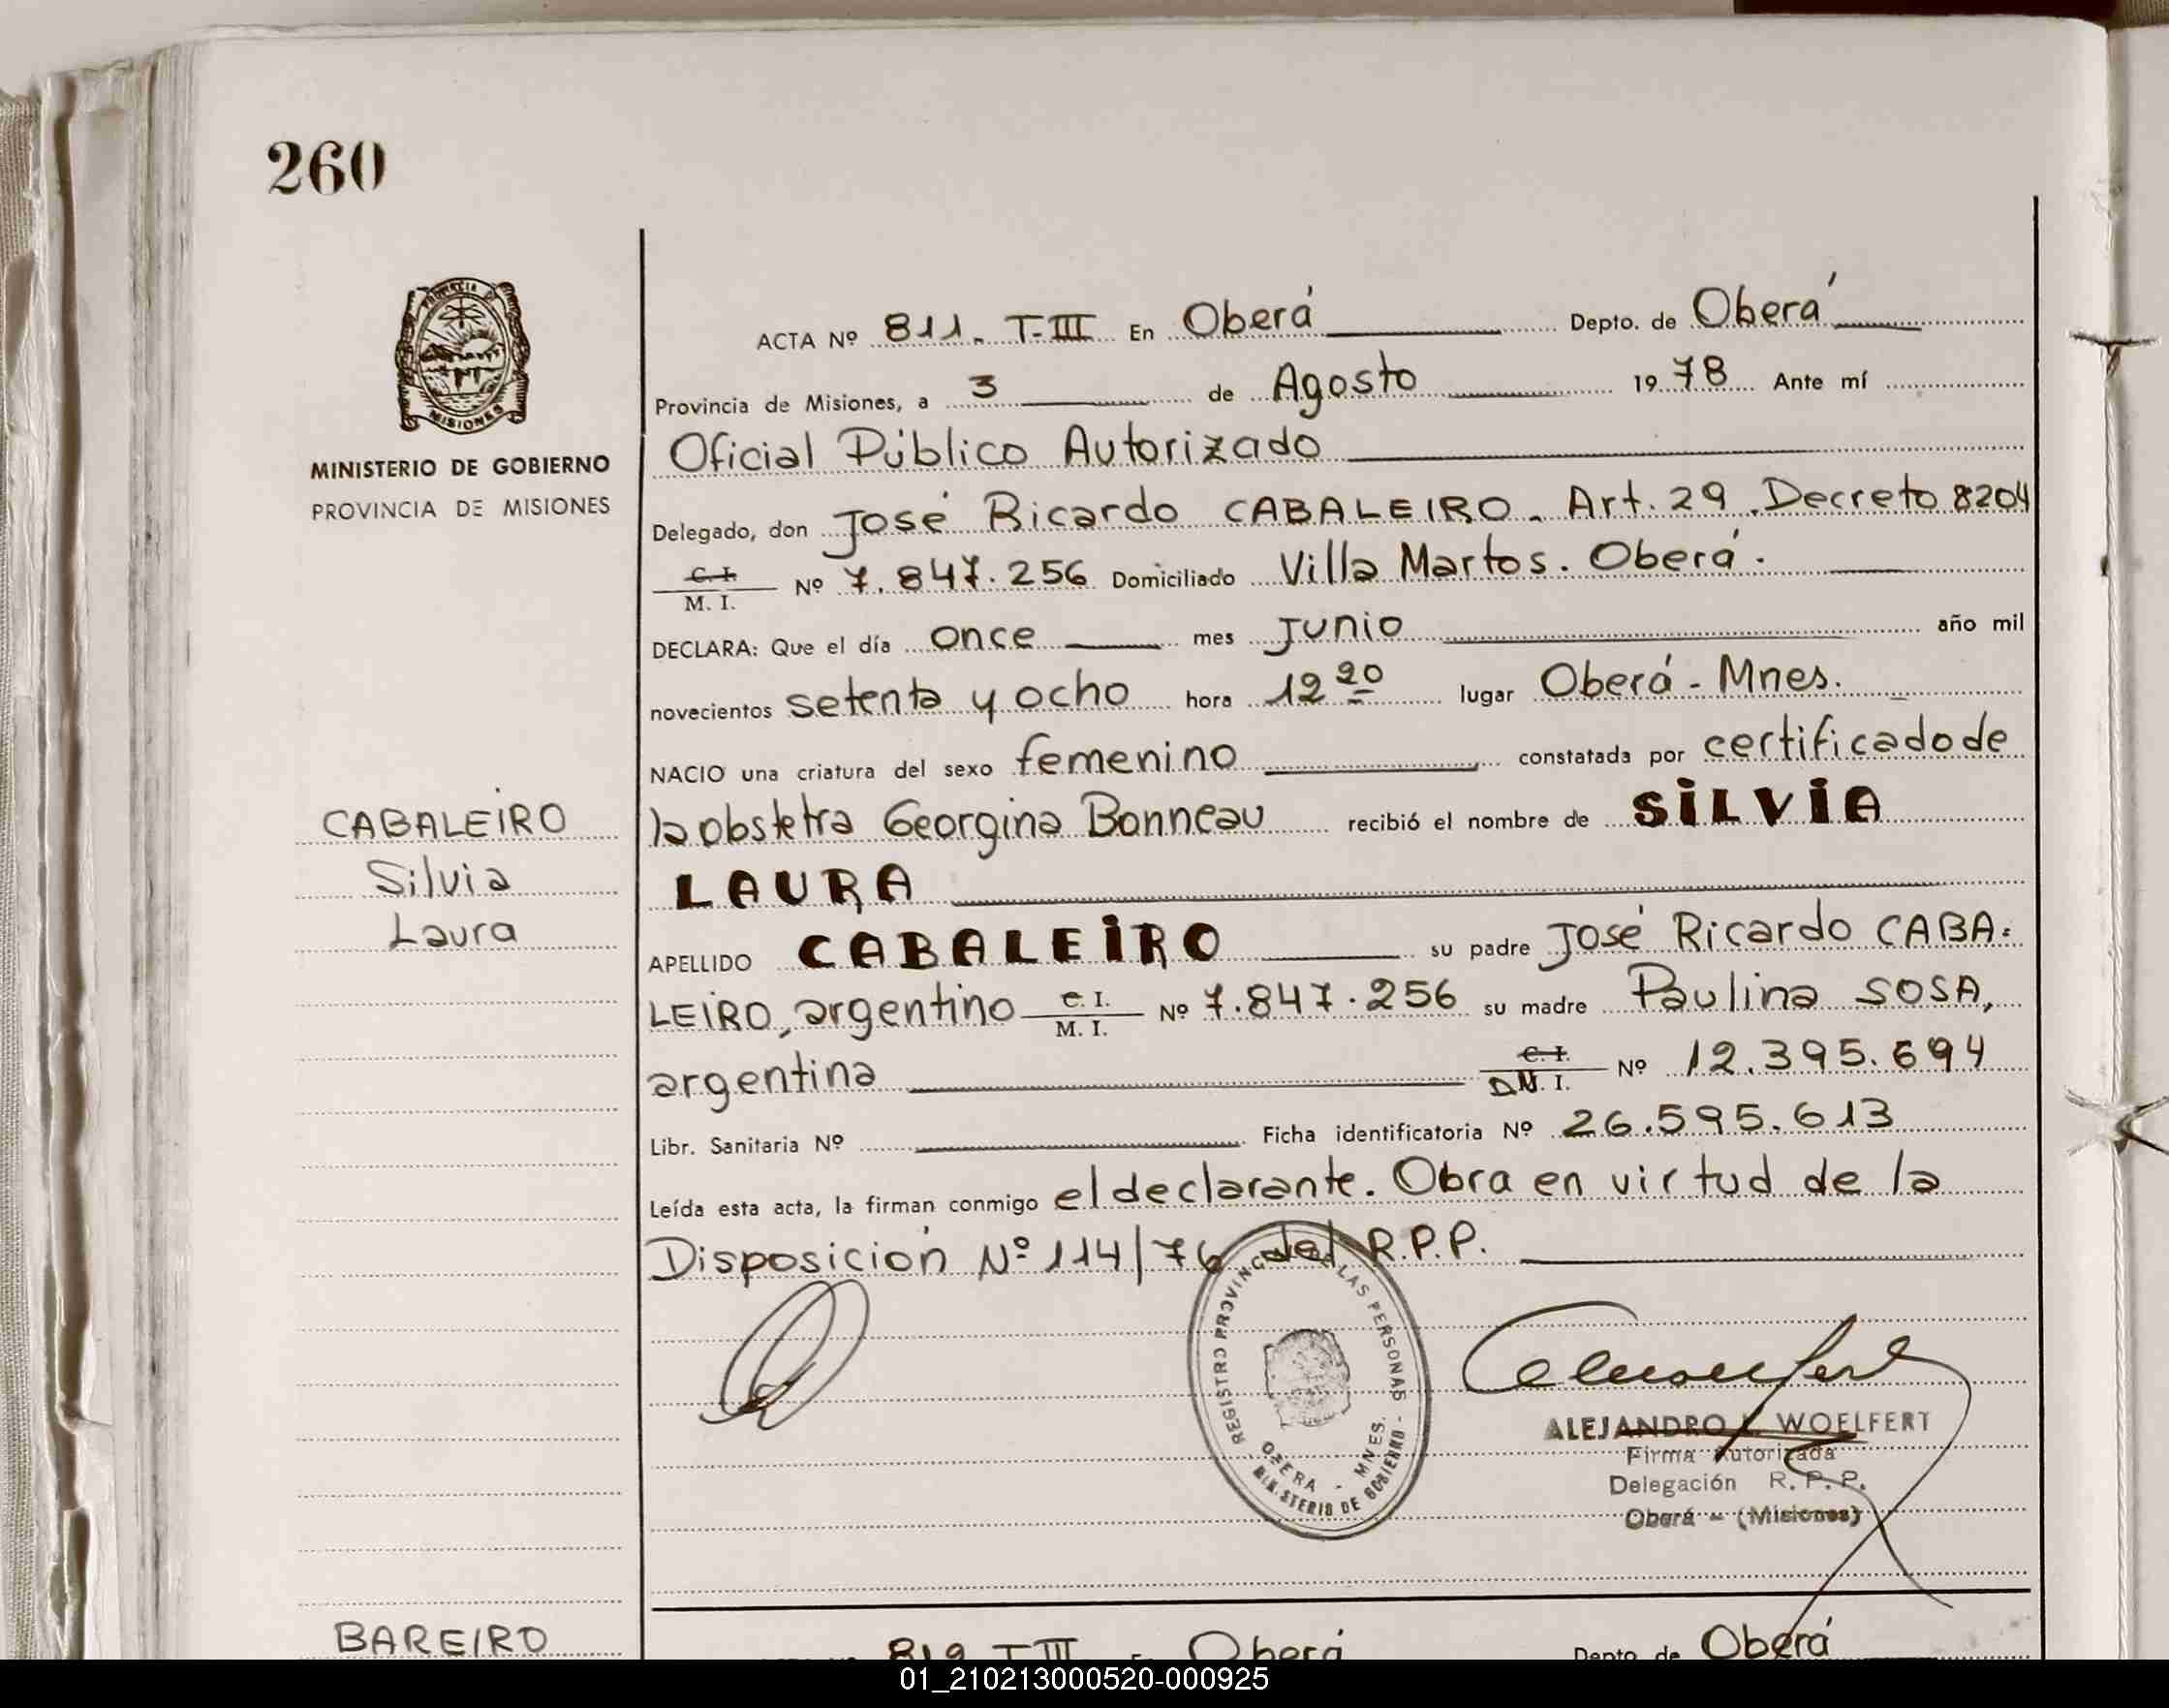 260
PROVINCIA DE
MISIONES
MINISTERIO DE GOBIERNO
PROVINCIA DE MISIONES
CABALEIRO
Silvia
Laura
BAREIRO
ACTA Nº 811. T-III En Oberá Depto. de Oberá
Provincia de Misiones, a 3 de Agosto 1978 Ante mí
Oficial Público Autorizado
Delegado, don José Ricardo CABALEIRO. Art. 29. Decreto 8204
C. I.
M. I. Nº 7.847.256 Domiciliado Villa Martos. Oberá.
DECLARA: Que el día once mes Junio año mil
novecientos setenta y ocho hora 12 20 lugar Oberá - Mnes.
NACIO una criatura del sexo femenino constatada por certificado de
la obstetra Georgina Bonneau recibió el nombre de SILVIA
LAURA
APELLIDO CABALEIRO su padre José Ricardo CABA=
LEIRO, argentino C. I.
M. I. Nº 7.847.256 su madre Paulina SOSA,
argentina C. I.
D.N. I. Nº 12.395.694
Libr. Sanitaria Nº Ficha identificatoria Nº 26.595.613
Leída esta acta, la firman conmigo el declarante. Obra en virtud de la
Disposición Nº 114/76 del R.P.P.
REGISTRO PROVINC LAS PERSONAS
OBERA - MNES.
MINISTERIO DE GOBIERNO -
ALEJANDRO WOELFERT
Firma Autorizada
Delegación R. P. P.
Oberá - (Misiones)
812 T-III En Oberá Depto. de Oberá
01_210213000520-000925